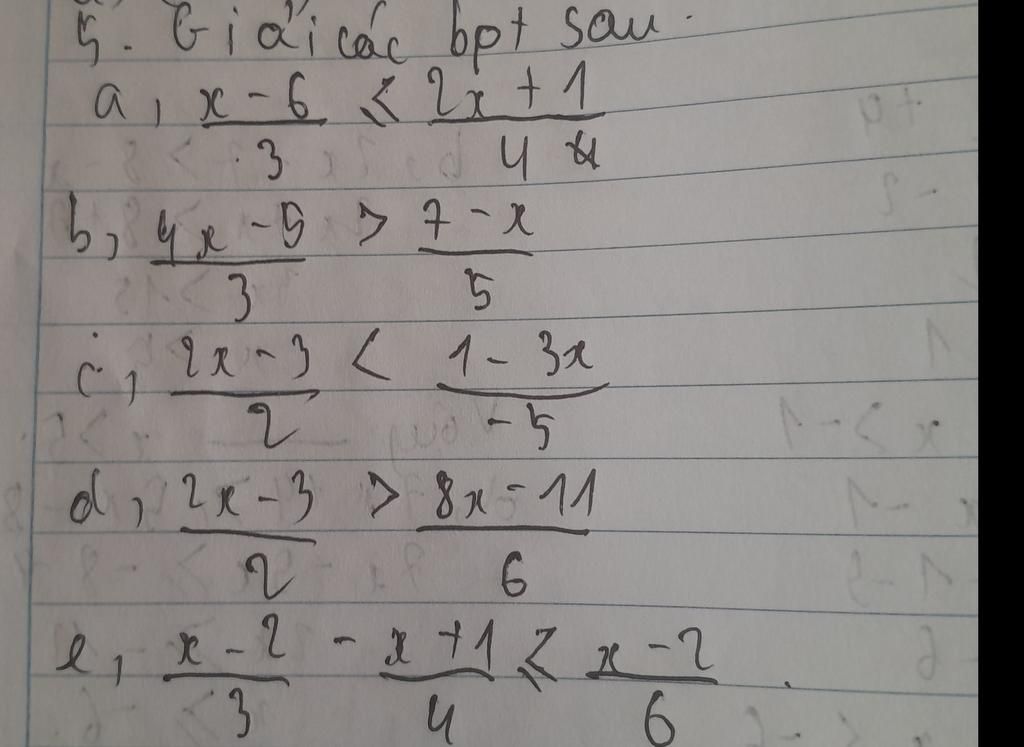 5. Giải các bpt sau.
a, x - 6 / 3 ≤ 2x + 1 / 4
b, 4x - 5 / 3 > 7 - x / 5
c, 2x - 3 / 2 < 1 - 3x / -5
d, 2x - 3 / 2 > 8x - 11 / 6
e, x - 2 / 3 - x + 1 / 4 ≤ x - 2 / 6.